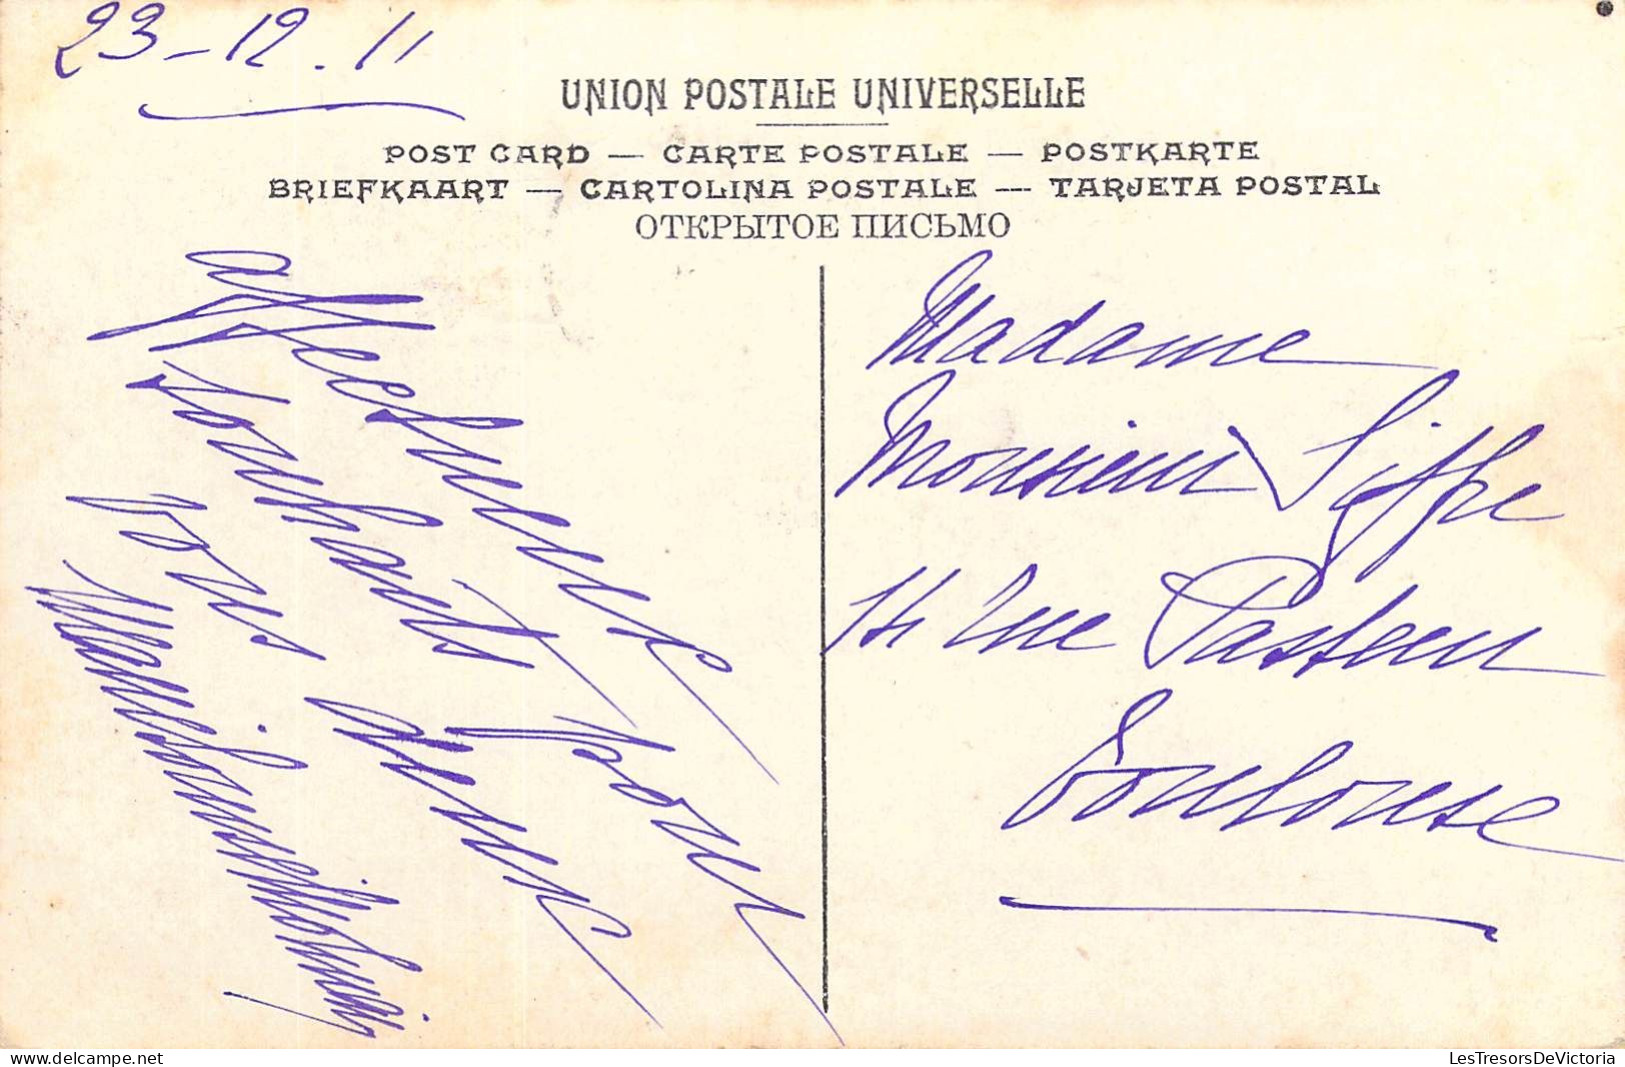 23-12.11
UNION POSTALE UNIVERSELLE
POST CARD — CARTE POSTALE — POSTKARTE
BRIEFKAART — CARTOLINA POSTALE — TARJETA POSTAL
ОТКРЫТОЕ ПИСЬМО
affectueux
souhaits pour
vous deux
Madame
Monsieur Siffre
14 Rue Pasteur
Toulouse
LesTresorsDeVictoria